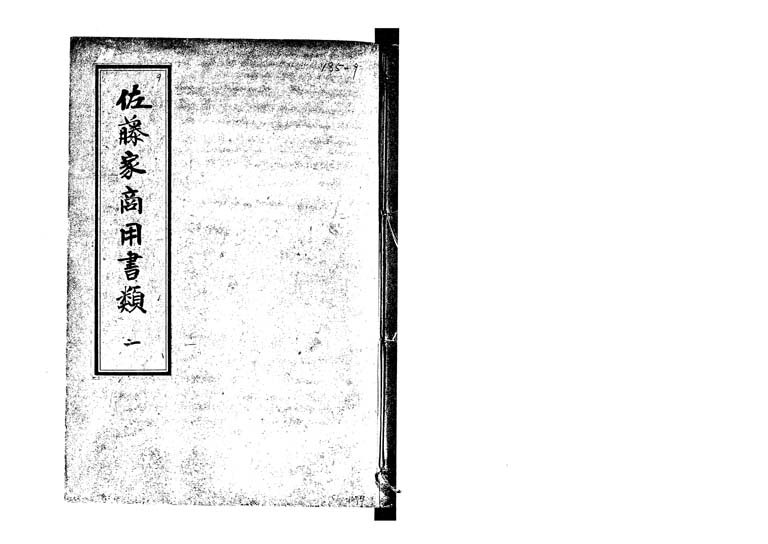 佐藤家商用書類 二
135-9